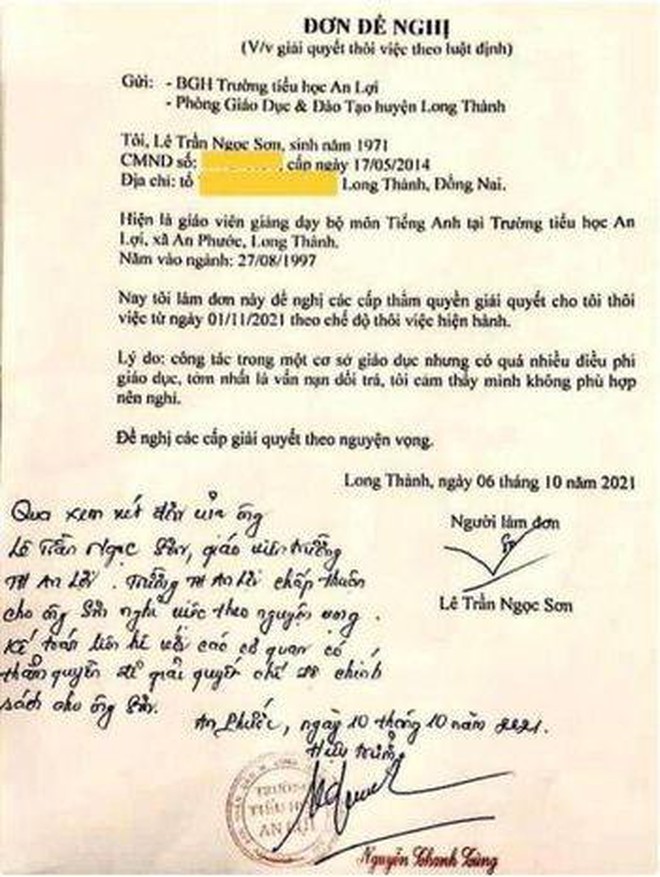 ĐƠN ĐỀ NGHỊ
(V/v giải quyết thôi việc theo luật định)
Gửi: - BGH Trường tiểu học An Lợi
- Phòng Giáo Dục & Đào Tạo huyện Long Thành
Tôi, Lê Trần Ngọc Sơn, sinh năm 1971
CMND số: , cấp ngày 17/05/2014
Địa chỉ: tổ Long Thành, Đồng Nai.
Hiện là giáo viên giảng dạy bộ môn Tiếng Anh tại Trường tiểu học An
Lợi, xã An Phước, Long Thành.
Năm vào ngành: 27/08/1997
Nay tôi làm đơn này đề nghị các cấp thẩm quyền giải quyết cho tôi thôi
việc từ ngày 01/11/2021 theo chế độ thôi việc hiện hành.
Lý do: công tác trong một cơ sở giáo dục nhưng có quá nhiều điều phi
giáo dục, tởm nhất là vấn nạn dối trá, tôi cảm thấy mình không phù hợp
nên nghỉ.
Đề nghị các cấp giải quyết theo nguyện vọng.
Long Thành, ngày 06 tháng 10 năm 2021
Người làm đơn
Lê Trần Ngọc Sơn
Qua xem xét đơn của ông
Lê Trần Ngọc Sơn, giáo viên trường
TH An Lợi. Trường TH An Lợi chấp thuận
cho ông Sơn nghỉ việc theo nguyện vọng.
Kế toán liên hệ với các cơ quan có
thẩm quyền để giải quyết chế độ chính
sách cho ông Sơn.
An Phước, ngày 10 tháng 10 năm 2021.
Hiệu trưởng
TRƯỜNG
TIỂU HỌC
AN LỢI
Nguyễn Thanh Tùng